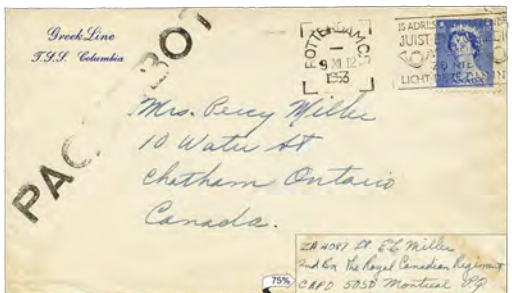 Greek Line
T.S.S. Columbia
PAQUEBOT
ROTTERDAM C.
9 XI 12
1953
IS ADRES
JUIST
ZO NIE
LICHT
Mrs. Percy Miller
10 Water St
Chatham Ontario
Canada.
ZA 4087 Lt. E L Miller
2nd Bn The Royal Canadian Regiment
CAPO 5050 Montreal PQ
75%